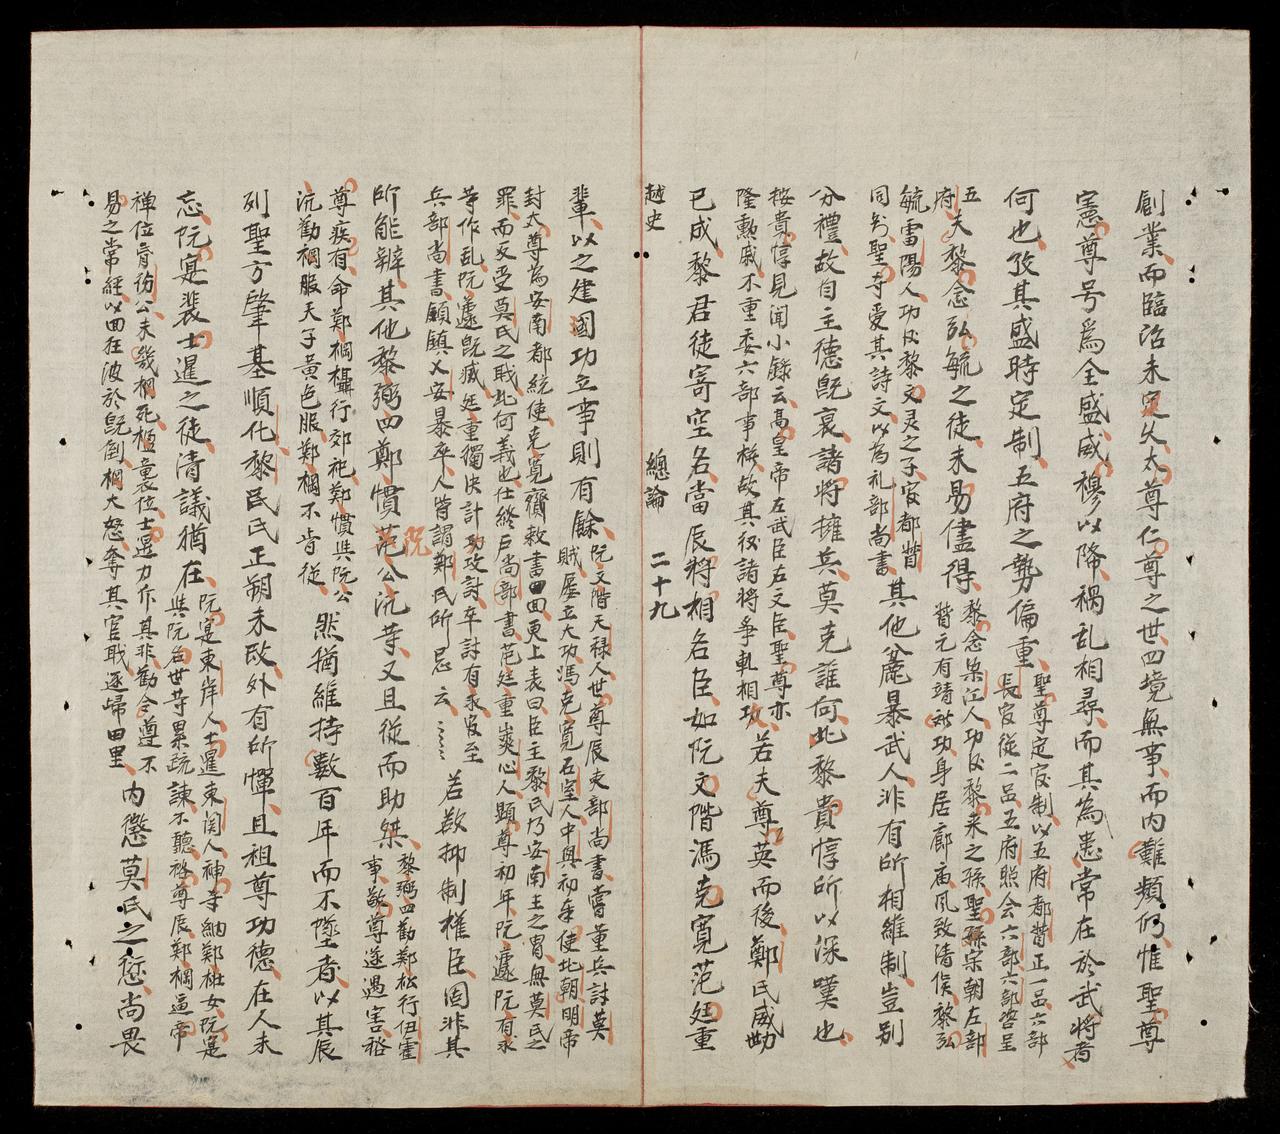 創業而臨治未定夂太尊仁尊之世四境無事而内難頻仍惟聖尊
憲尊号爲全盛威穆以降禍乱相尋而其為患常在於武將者
何也攷其盛時定制五府之勢偏重
聖尊定官制以五府都督正一品六部
長官從二品五府照会六部六部咨呈
五
府
夫黎念弘毓之徒未易儘得
黎念梁江人功臣黎来之孫聖孫宗朝左部
督元有靖難功身居廊庙風致清俟黎弘
毓雷陽人功臣黎文灵之子官都督
同知聖寺愛其詩文以為礼部尚書
其他麄暴武人非有所相維制豈别
分禮故自主德旣衰諸將擁兵莫克誰何此黎貴惇所以深嘆也
按貴惇見聞小錄云高皇帝左武臣右文臣聖尊亦
隆勲戚不重委六部事權故其後諸將争軋相攻
若夫尊英而後鄭氏威勢
已成黎君徒寄空名當辰將相名臣如阮文階馮克寛范廷重
越史
總論
二十九
輩以之建國功立事則有餘
阮文階天禄人世尊辰吏部尚書嘗董兵討莫
賊屡立大功馮克寛石室人中興初奉使北朝明帝
封太尊為安南都統使克寛齎敕書回更上表曰臣主黎氏乃安南王之胄無莫氏之
罪而反受莫氏之職此何義也仕終戶尚部書范廷重爽心人顯尊初年阮遽阮有求
等作乱阮遽旣滅廷重獨決計功攻討卒討有求官至
兵部尚書顧鎮乂安暴卒人皆謂鄭氏所忌云
若敢抑制權臣固非其
所能辦其他黎弼四鄭慣范公沆等又且從而助桀
阮
黎弼四勸鄭松行伊霍
事敬尊遂遇害裕
尊疾有命鄭棡攝行郊祀鄭慣與阮公
沆勸棡服天子黃色服鄭棡不肯從
然猶維持數百年而不墜者以其辰
列聖方肇基順化黎民氏正朔未改外有所憚且祖尊功德在人未
忘阮寔裴士暹之徒清議猶在
阮寔東岸人士暹東関人神寺納鄭杜女阮寔
與阮名世等累疏諫不聽裕尊辰鄭棡逼帝
禅位脅彷公未幾棡死楹襄位士暹力斥其非勸令尊不
易之常經以回狂波於旣倒棡大怒奪其官職逐歸田里
内懲莫氏之愆尚畏